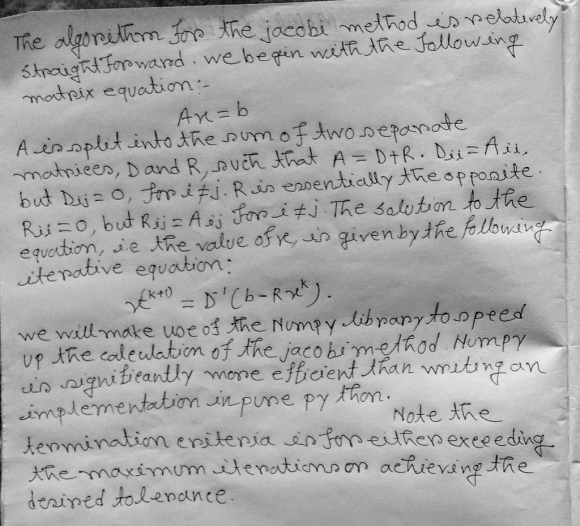 The algorithm for the jacobi method is relatively
straightforward. we begin with the following
matrix equation:-
Ax = b
A is split into the sum of two separate
matrices, D and R, such that A = D+R. Dii = Aii,
but Dij = 0, for i≠j. R is essentially the opposite.
Rii = 0, but Rij = Aij for i≠j. The solution to the
equation, i.e the value of x, is given by the following
iterative equation:
x^(k+1) = D^-1 (b-Rx^k).
we will make use of the Numpy library to speed
up the calculation of the jacobi method. Numpy
is significantly more efficient than writing an
implementation in pure py thon.
Note the
termination criteria is for either exceeding
the maximum iterations or achieving the
desired tolerance.